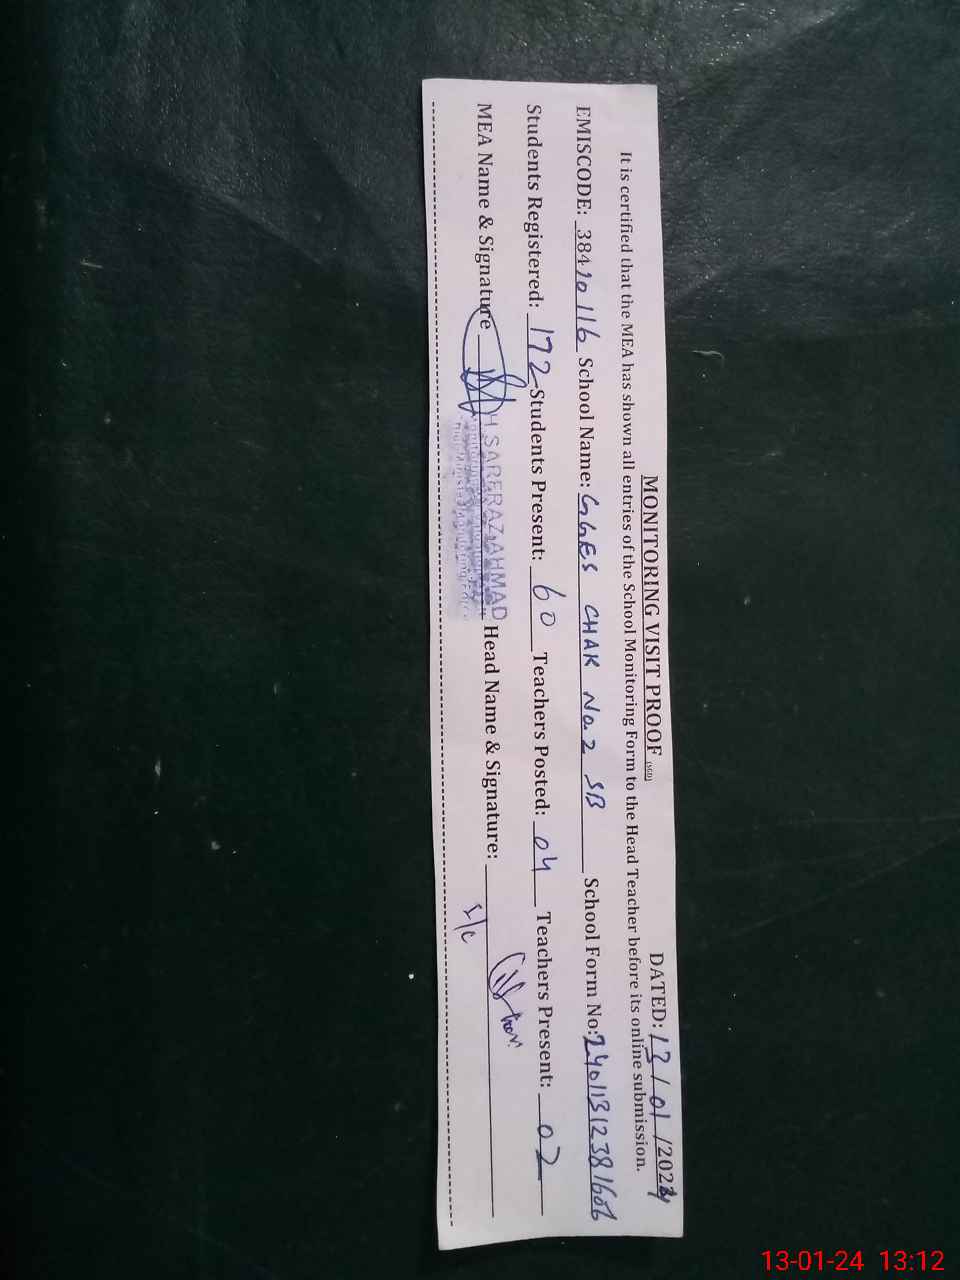 MONITORING VISIT PROOF (SED)
DATED: 13/01/2024
It is certified that the MEA has shown all entries of the School Monitoring Form to the Head Teacher before its online submission.
EMISCODE: 38410116 School Name: GGES CHAK No. 2 SB School Form No: 2401131238
Students Registered: 172 Students Present: 60 Teachers Posted: 04 Teachers Present: 02
MEA Name & Signature H SARFRAZ AHMAD Head Name & Signature:
S/C
13-01-24 13:12